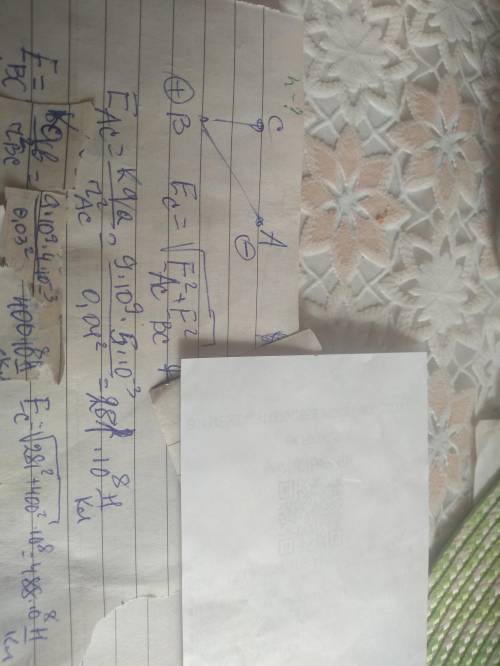 г-?
C
A
⊖
⊕ B
E_c = √E²_AC + E²_BC
E_AC = Kq_a / r²_AC = 9·10⁹·5·10⁻³ / 0,04² = 281·10⁸ Н/Кл
E_BC = Kq_b / r²_BC = 9·10⁹·4·10⁻³ / 0,03² = 400·10⁸ Н/Кл
E_c = √281² + 400² ·10⁸ = 488·10⁸ Н/Кл